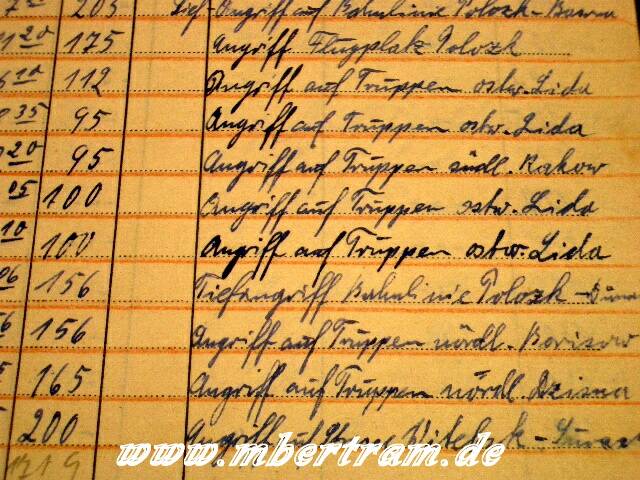 203 Tief-Angriff auf Bahnlinie Polozk-
20 175 Angriff Flugplatz Polozk
10 112 Angriff auf Truppen ostw. Lida
35 95 Angriff auf Truppen ostw. Lida
20 95 Angriff auf Truppen südl. Rakow
05 100 Angriff auf Truppen ostw. Lida
10 100 Angriff auf Truppen ostw. Lida
06 156 Tiefangriff Bahnlinie Polozk -
156 Angriff auf Truppen nördl. Borisow
165 Angriff auf Truppen nördl. Dzisna
200 Angriff auf Witebsk -
www.mbertram.de